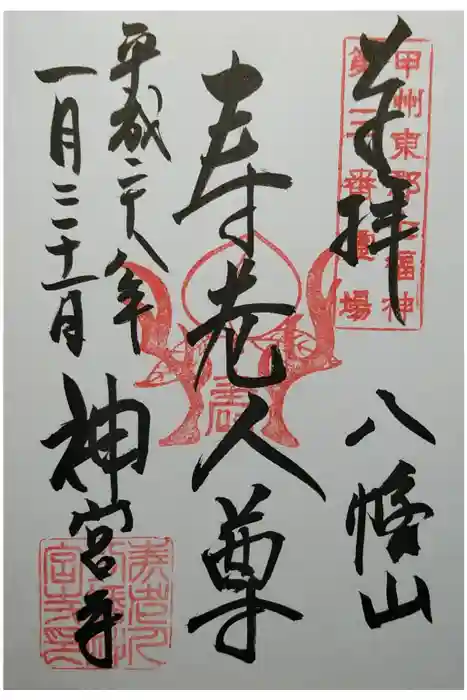 甲州東郡七福神
番霊場
奉拝
八幡山
寿老人尊
平成二十八年
一月三十一日
神宮寺